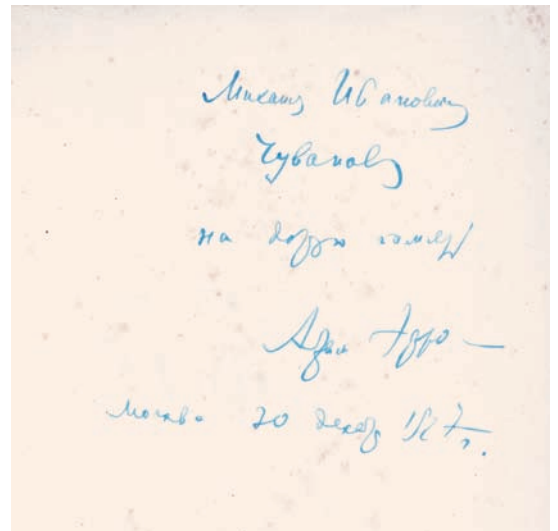 Михаилу Ивановичу
Чуванову
на добрую память
Абрам Эфрос
Москва 20 декабр 1927 г.